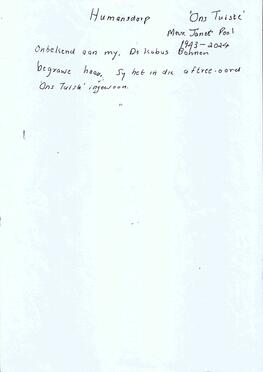 Humansdorp 'Ons Tuiste'
Mev. Janet Pool
1943-2024
Onbekend aan my. Ds Kobus Bohnen
begrawe haar. Sy het in die aftree-oord
'Ons Tuiste' ingewoon.